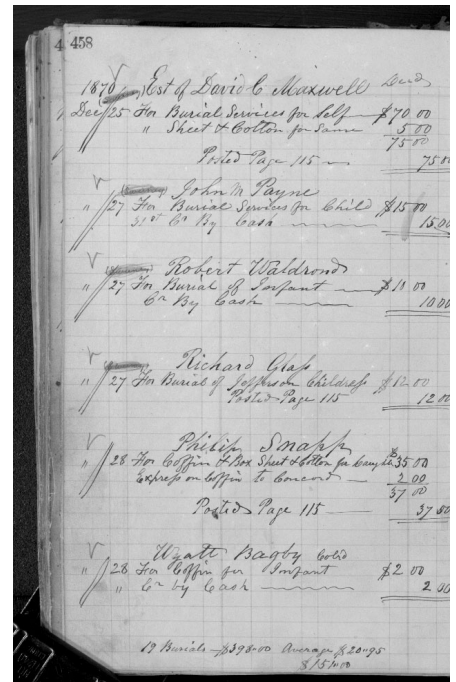 458
1870 Est of David C Maxwell Decd
Dec 25 For Burial Services for Self — $70 00
" Sheet & Cotton for Same 5 00
75 00
Posted Page 115 — 75 00
John M Payne
" 27 For Burial Services for Child $15 00
31st Cr By Cash — 15 00
Robert Waldrond
" 27 For Burial of Infant — $10 00
Cr By Cash — 10 00
Richard Glass
" 27 For Burial of Jefferson Childress $12 00
Posted Page 115 12 00
Philip Snapp
" 28 For Coffin & Box Sheet & Cotton for $35 00
Express on Coffin to Concord — 2 00
37 00
Posted Page 115 — 37 00
Wyatt Bagby Cold
" 28 For Coffin for Infant $2 00
" Cr by Cash — 2 00
19 Burials — $398-00 Average $20-95